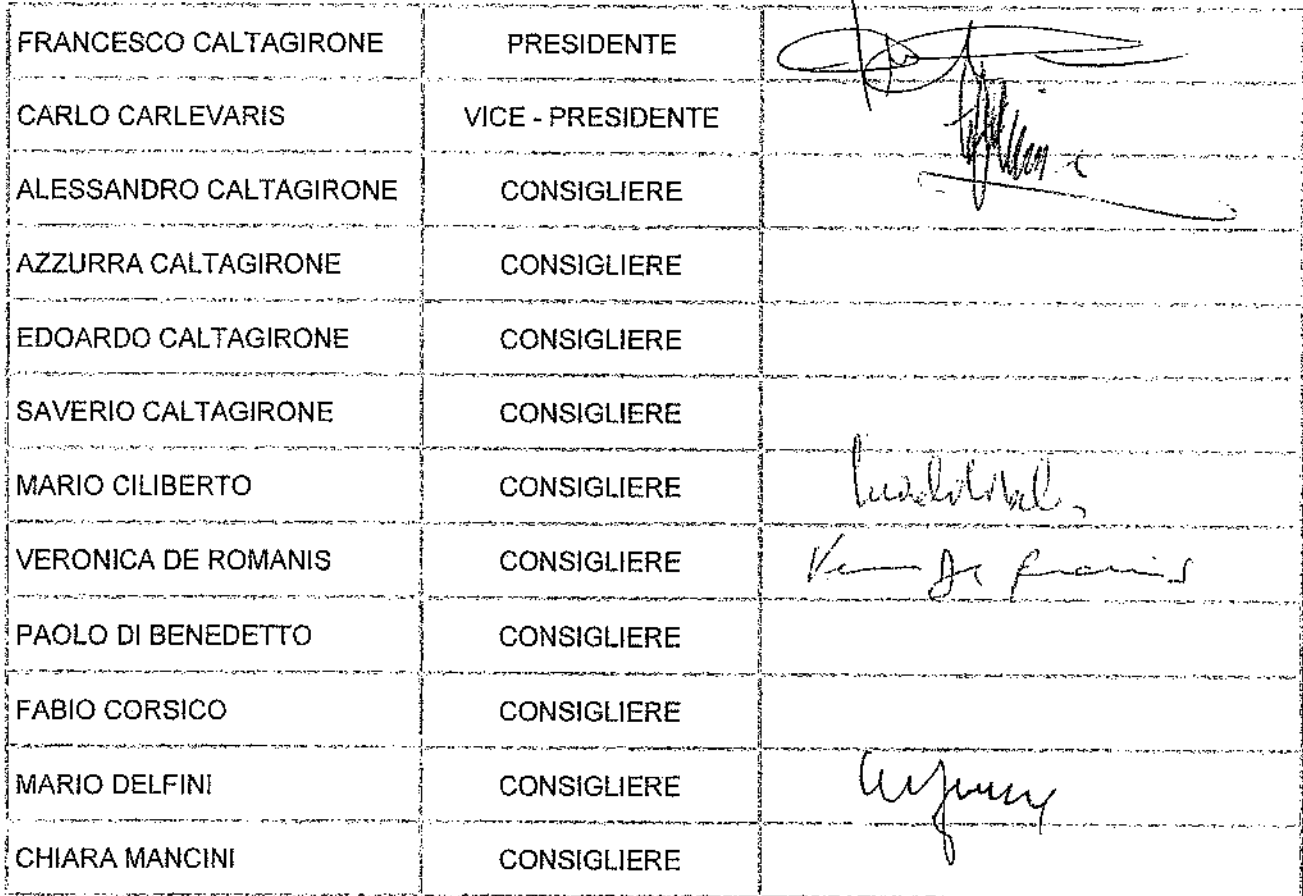 FRANCESCO CALTAGIRONE PRESIDENTE
CARLO CARLEVARIS VICE - PRESIDENTE
ALESSANDRO CALTAGIRONE CONSIGLIERE
AZZURRA CALTAGIRONE CONSIGLIERE
EDOARDO CALTAGIRONE CONSIGLIERE
SAVERIO CALTAGIRONE CONSIGLIERE
MARIO CILIBERTO CONSIGLIERE
VERONICA DE ROMANIS CONSIGLIERE
PAOLO DI BENEDETTO CONSIGLIERE
FABIO CORSICO CONSIGLIERE
MARIO DELFINI CONSIGLIERE
CHIARA MANCINI CONSIGLIERE